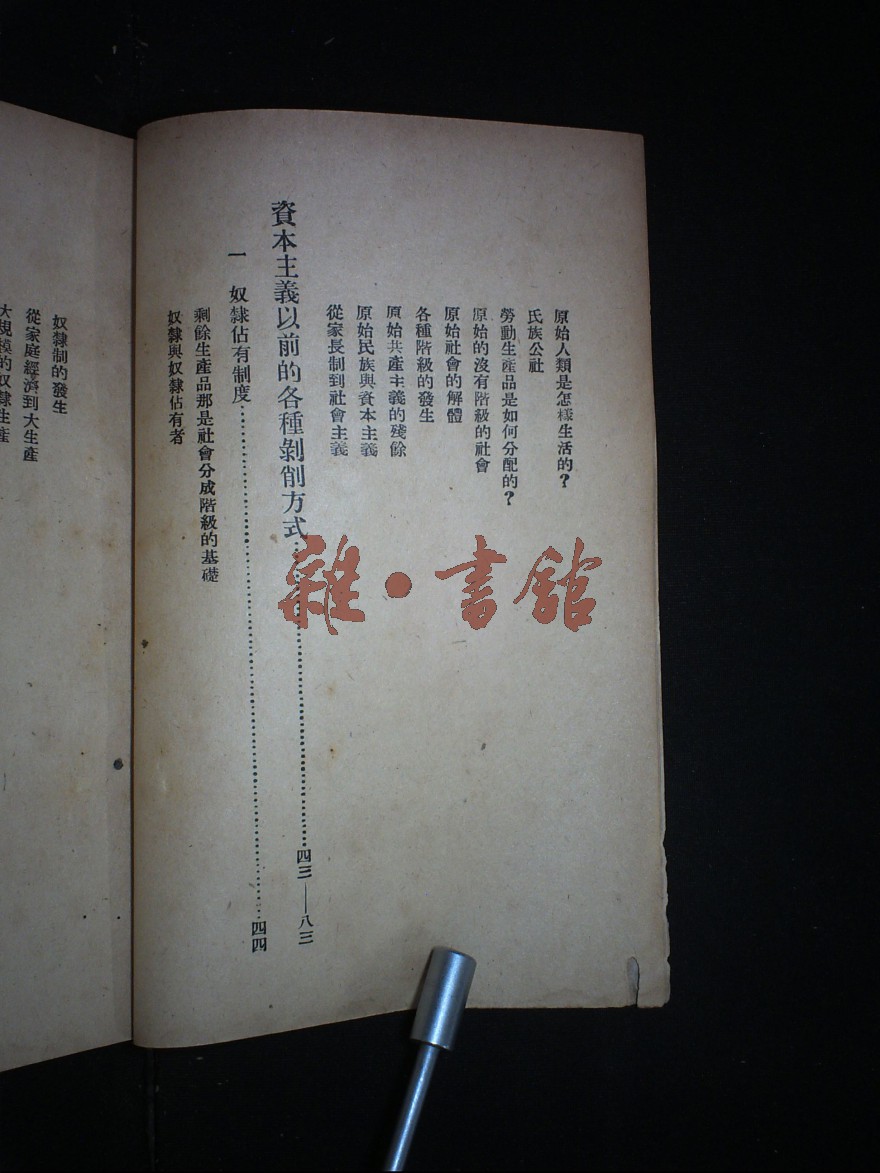 原始人類是怎樣生活的?
氏族公社
勞動生產品是如何分配的?
原始的沒有階級的社會
原始社會的解體
各種階級的發生
原始共產主義的殘餘
原始民族與資本主義
從家長制到社會主義
資本主義以前的各種剝削方式……四三——八三
一 奴隸佔有制度……四四
剩餘生產品那是社會分成階級的基礎
奴隸與奴隸佔有者
奴隸制的發生
從家庭經濟到大生產
大規模的奴隸生產
雜·書館